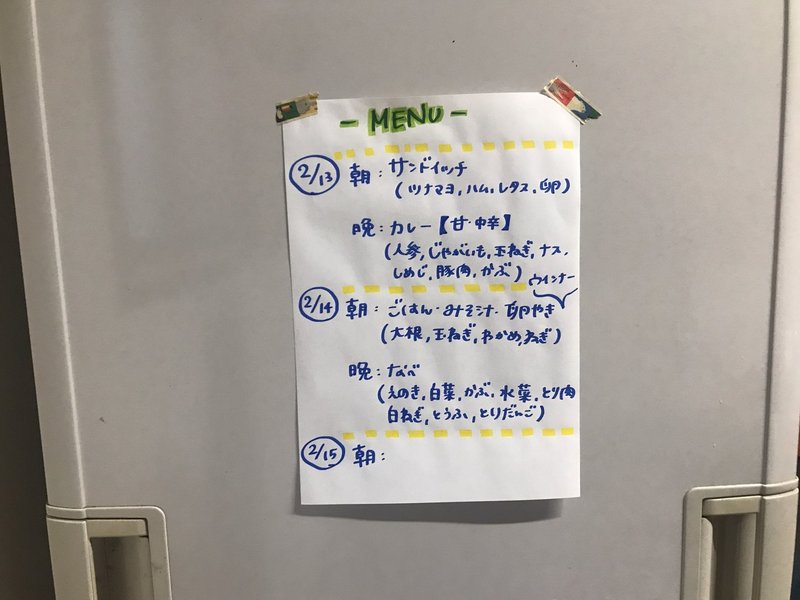 - MENU -
2/13 朝: サンドイッチ
(ツナマヨ, ハム, レタス, 卵)
晩: カレー【甘・中辛】
(人参, じゃがいも, 玉ねぎ, ナス,
しめじ, 豚肉, かぶ)
ウインナー
2/14 朝: ごはん・みそ汁・卵やき
(大根, 玉ねぎ, わかめ, ねぎ)
晩: なべ
(えのき, 白菜, かぶ, 水菜, とり肉
白ねぎ, とうふ, とりだんご)
2/15 朝: